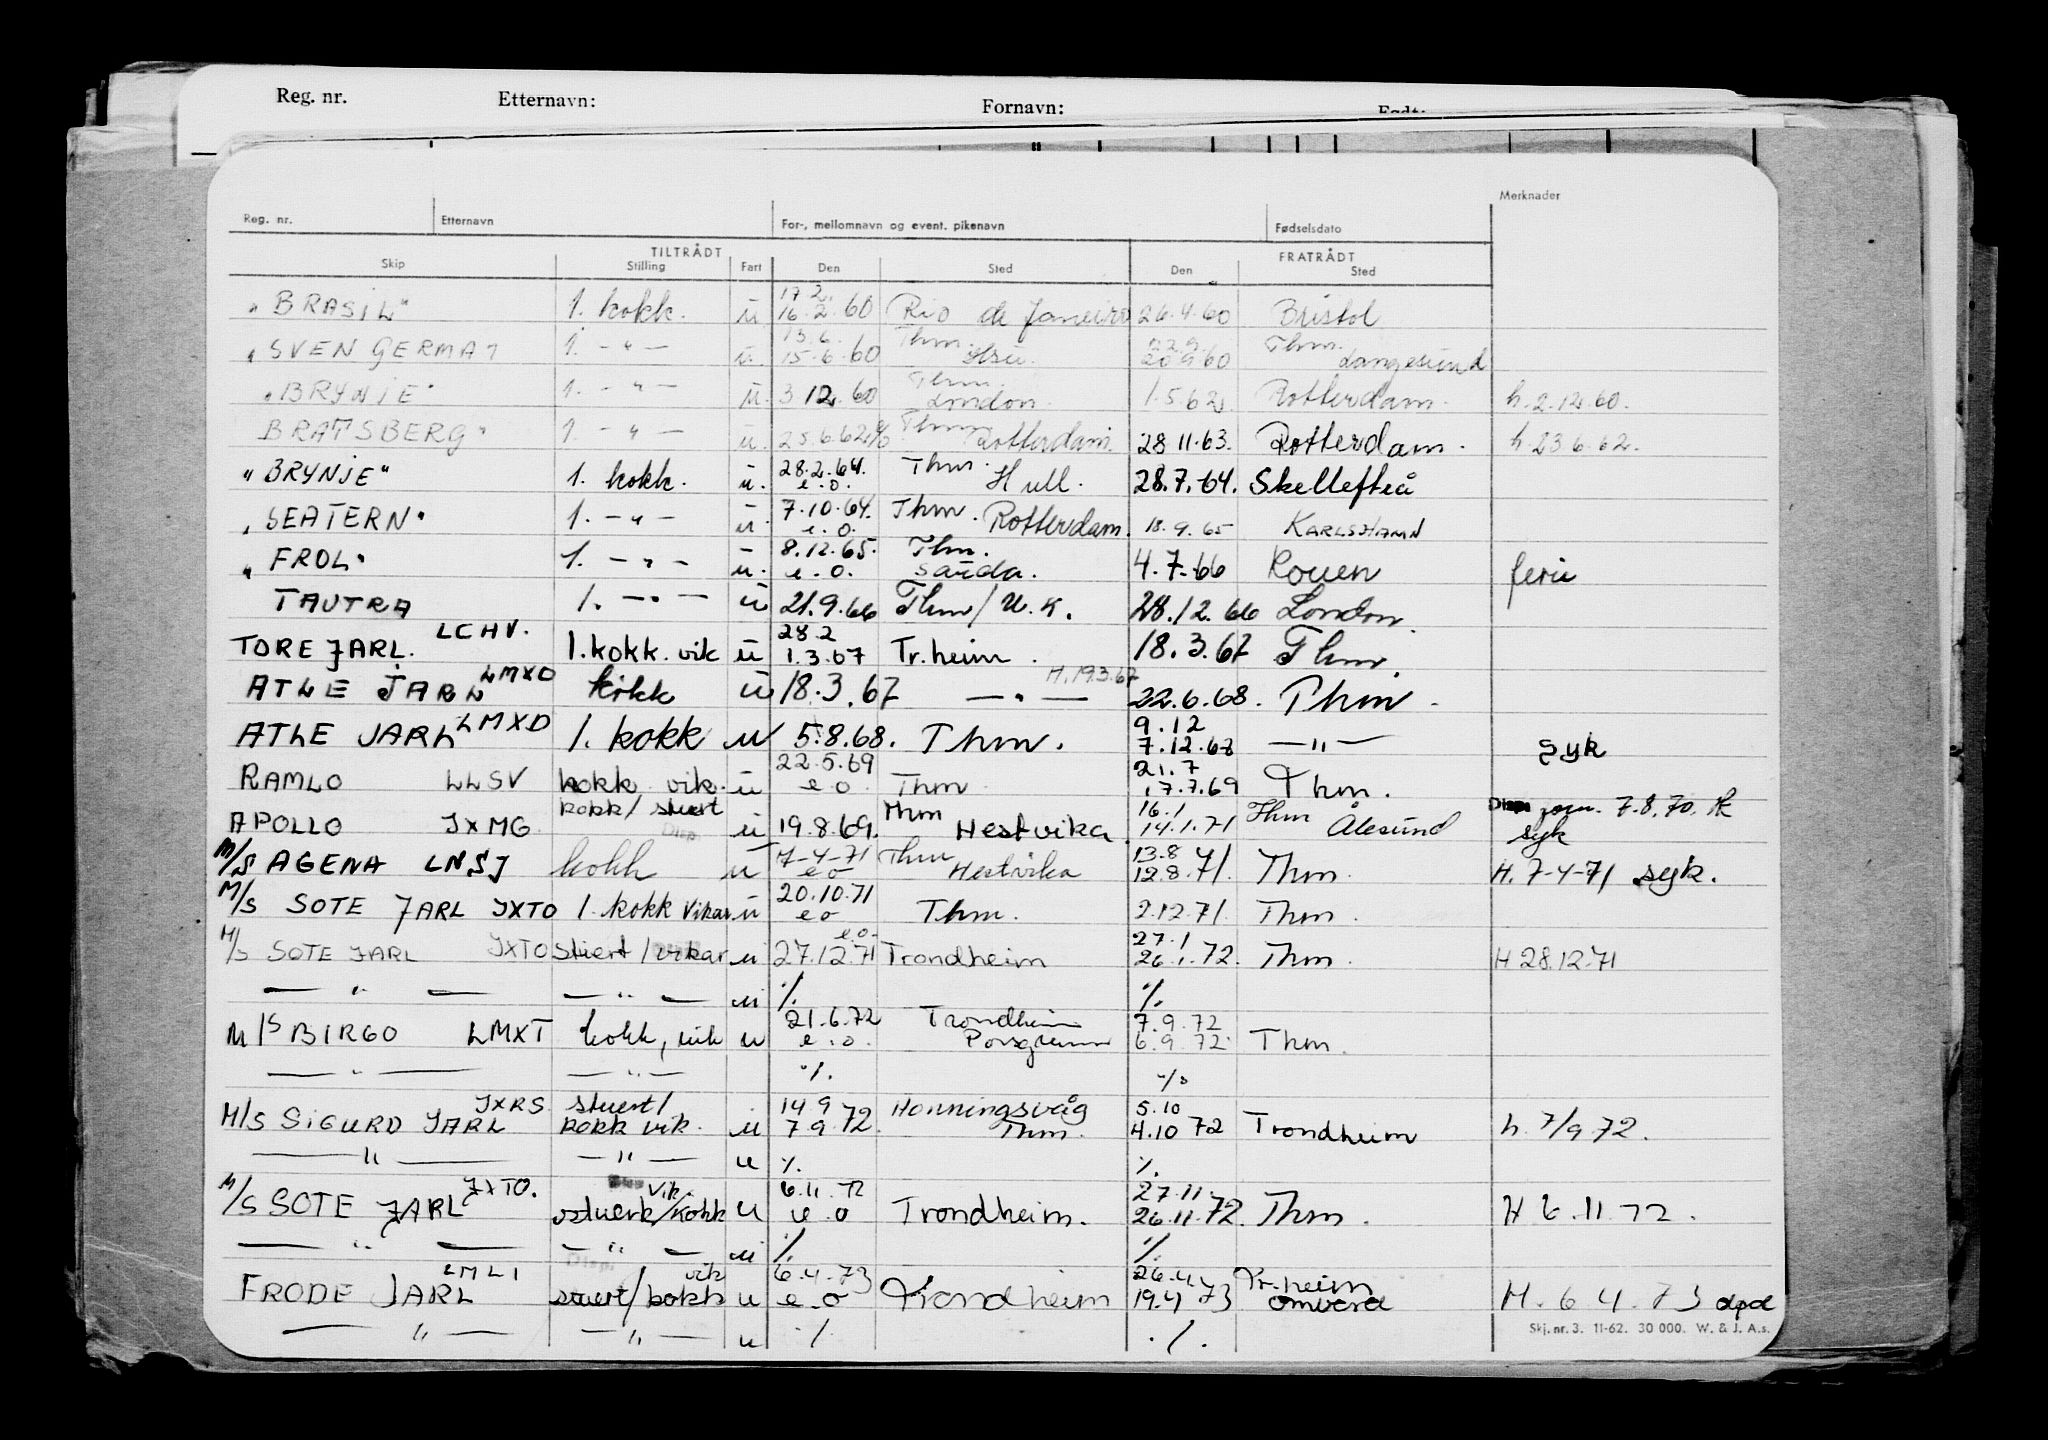 Reg. nr. Etternavn: Fornavn: Født:
Merknader
Reg. nr. Etternavn For-, mellomnavn og event. pikenavn Fødselsdato
TILTRÅDT FRATRÅDT
Skip Stilling Fart Den Sted Den Sted
17.2.
"BRASIL" 1. kokk. u 16.2.60 Rio de Janeiro 26.4.60 Bristol
13.6. Thm. 22.9. Thm.
"SVEN GERMA" 1. - " - u. 15.6.60 20.9.60 Langesund
Thm.
"BRYNJE" 1. - " - u. 3 12. 60 London 1.5.62 Rotterdam. h. 2.12.60.
Thm
BRATSBERG" 1. - " - u. 25.6.62 Rotterdam. 28 11.63. Rotterdam. h. 23 6.62.
28.2.64. Thm.
"BRYNJE" 1. kokk. u. e.o. Hull. 28.7.64. Skellefteå
7.10.64. Thm.
"SEATERN" 1. - " - u e.o. Rotterdam. 18.9.65 KARLSHAMN
8.12.65. Thm.
"FROL" 1. - " - u. e.o. Sauda. 4.7.66 Rouen ferie
TAUTRA 1. - " - u 21.9.66 Thm/U.K. 28.12.66 London.
LCHV. 28.2
TORE JARL. 1. kokk. vik u 1.3.67 Tr.heim. 18.3.67 Thm.
LMXD H. 19.3.67
ATLE JARL kokk u 18.3.67 - " - 22.6.68. Thm.
9.12
ATLE JARL LMXD 1. kokk u 5.8.68. Thm. 7.12.68 - " - syk
22.5.69 21.7
RAMLO LLSV kokk vik. u e o Thm 17.7.69 Thm.
kokk/stuert Thm 16.1 Thm Disp. 7.8.70.
APOLLO JXMG Disp. u 19.8.69. Hestvika 14.1.71 Ålesund syk
7-4-71 Thm 13.8
M/S AGENA LNSJ kokk u e o Hestvika 12.8.71. Thm. H. 7-4-71 syk.
20.10.71
M/S SOTE JARL JXTO 1. kokk vikar u e o Thm. 2.12.71. Thm.
e.o. 27.1
M/S SOTE JARL JXTO stuert/vikar u 27.12.71 Trondheim 26.1.72. Thm. H 28.12.71
- " - - " - u % %
21.6.72 Trondheim 7.9.72
M/S BIRGO LMXT kokk, vik u e.o. Porsgrunn 6.9.72. Thm.
- " - - " - % %
JXRS stuert/ 14 9 Honningsvåg 5.10
M/S SIGURD JARL kokk vik. u 7 9 72. Thm. 4.10 72 Trondheim h. 7/9 72.
- " - - " - u % %
JXTO. vik. 6.11.72 27.11
M/S SOTE JARL stuert/kokk u e o Trondheim. 26.11.72. Thm. H 6.11.72.
- " - - " - u % %
LMLI Disp. vik 6.4.73 26.4 Tr.heim
FRODE JARL stuert/kokk u e.o Trondheim 19.4 73 ombord H. 6 4. 73
- " - - " - u % %
Skj. nr. 3. 11-62. 30 000. W. & J. A.s.